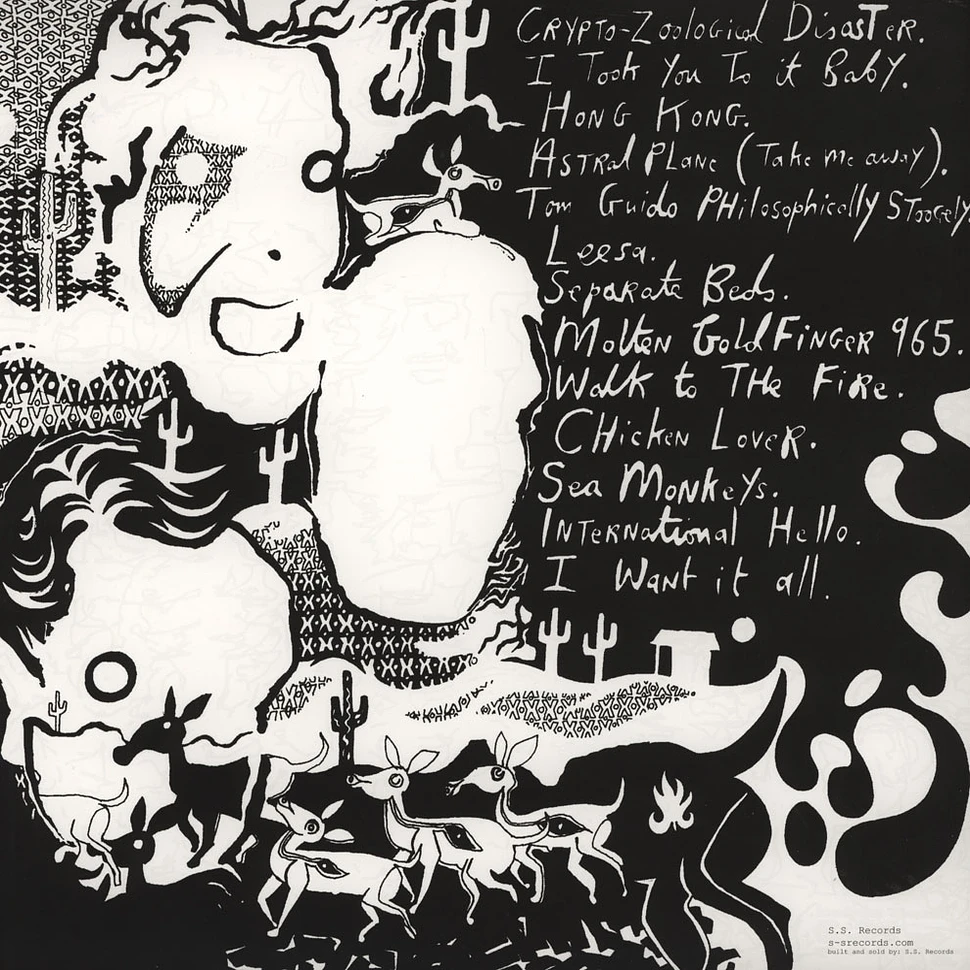 Crypto-Zoological Disaster.
I Took You To it Baby.
Hong Kong.
Astral Plane (Take me away).
Tom Guido PHilosophically Stoogely
Leesa.
Separate Beds.
Molten GoldFinger 965.
Walk to THe Fire.
CHicken Lover.
Sea Monkeys.
International Hello.
I Want it all.
S.S. Records
s-srecords.com
built and sold by: S.S. Records